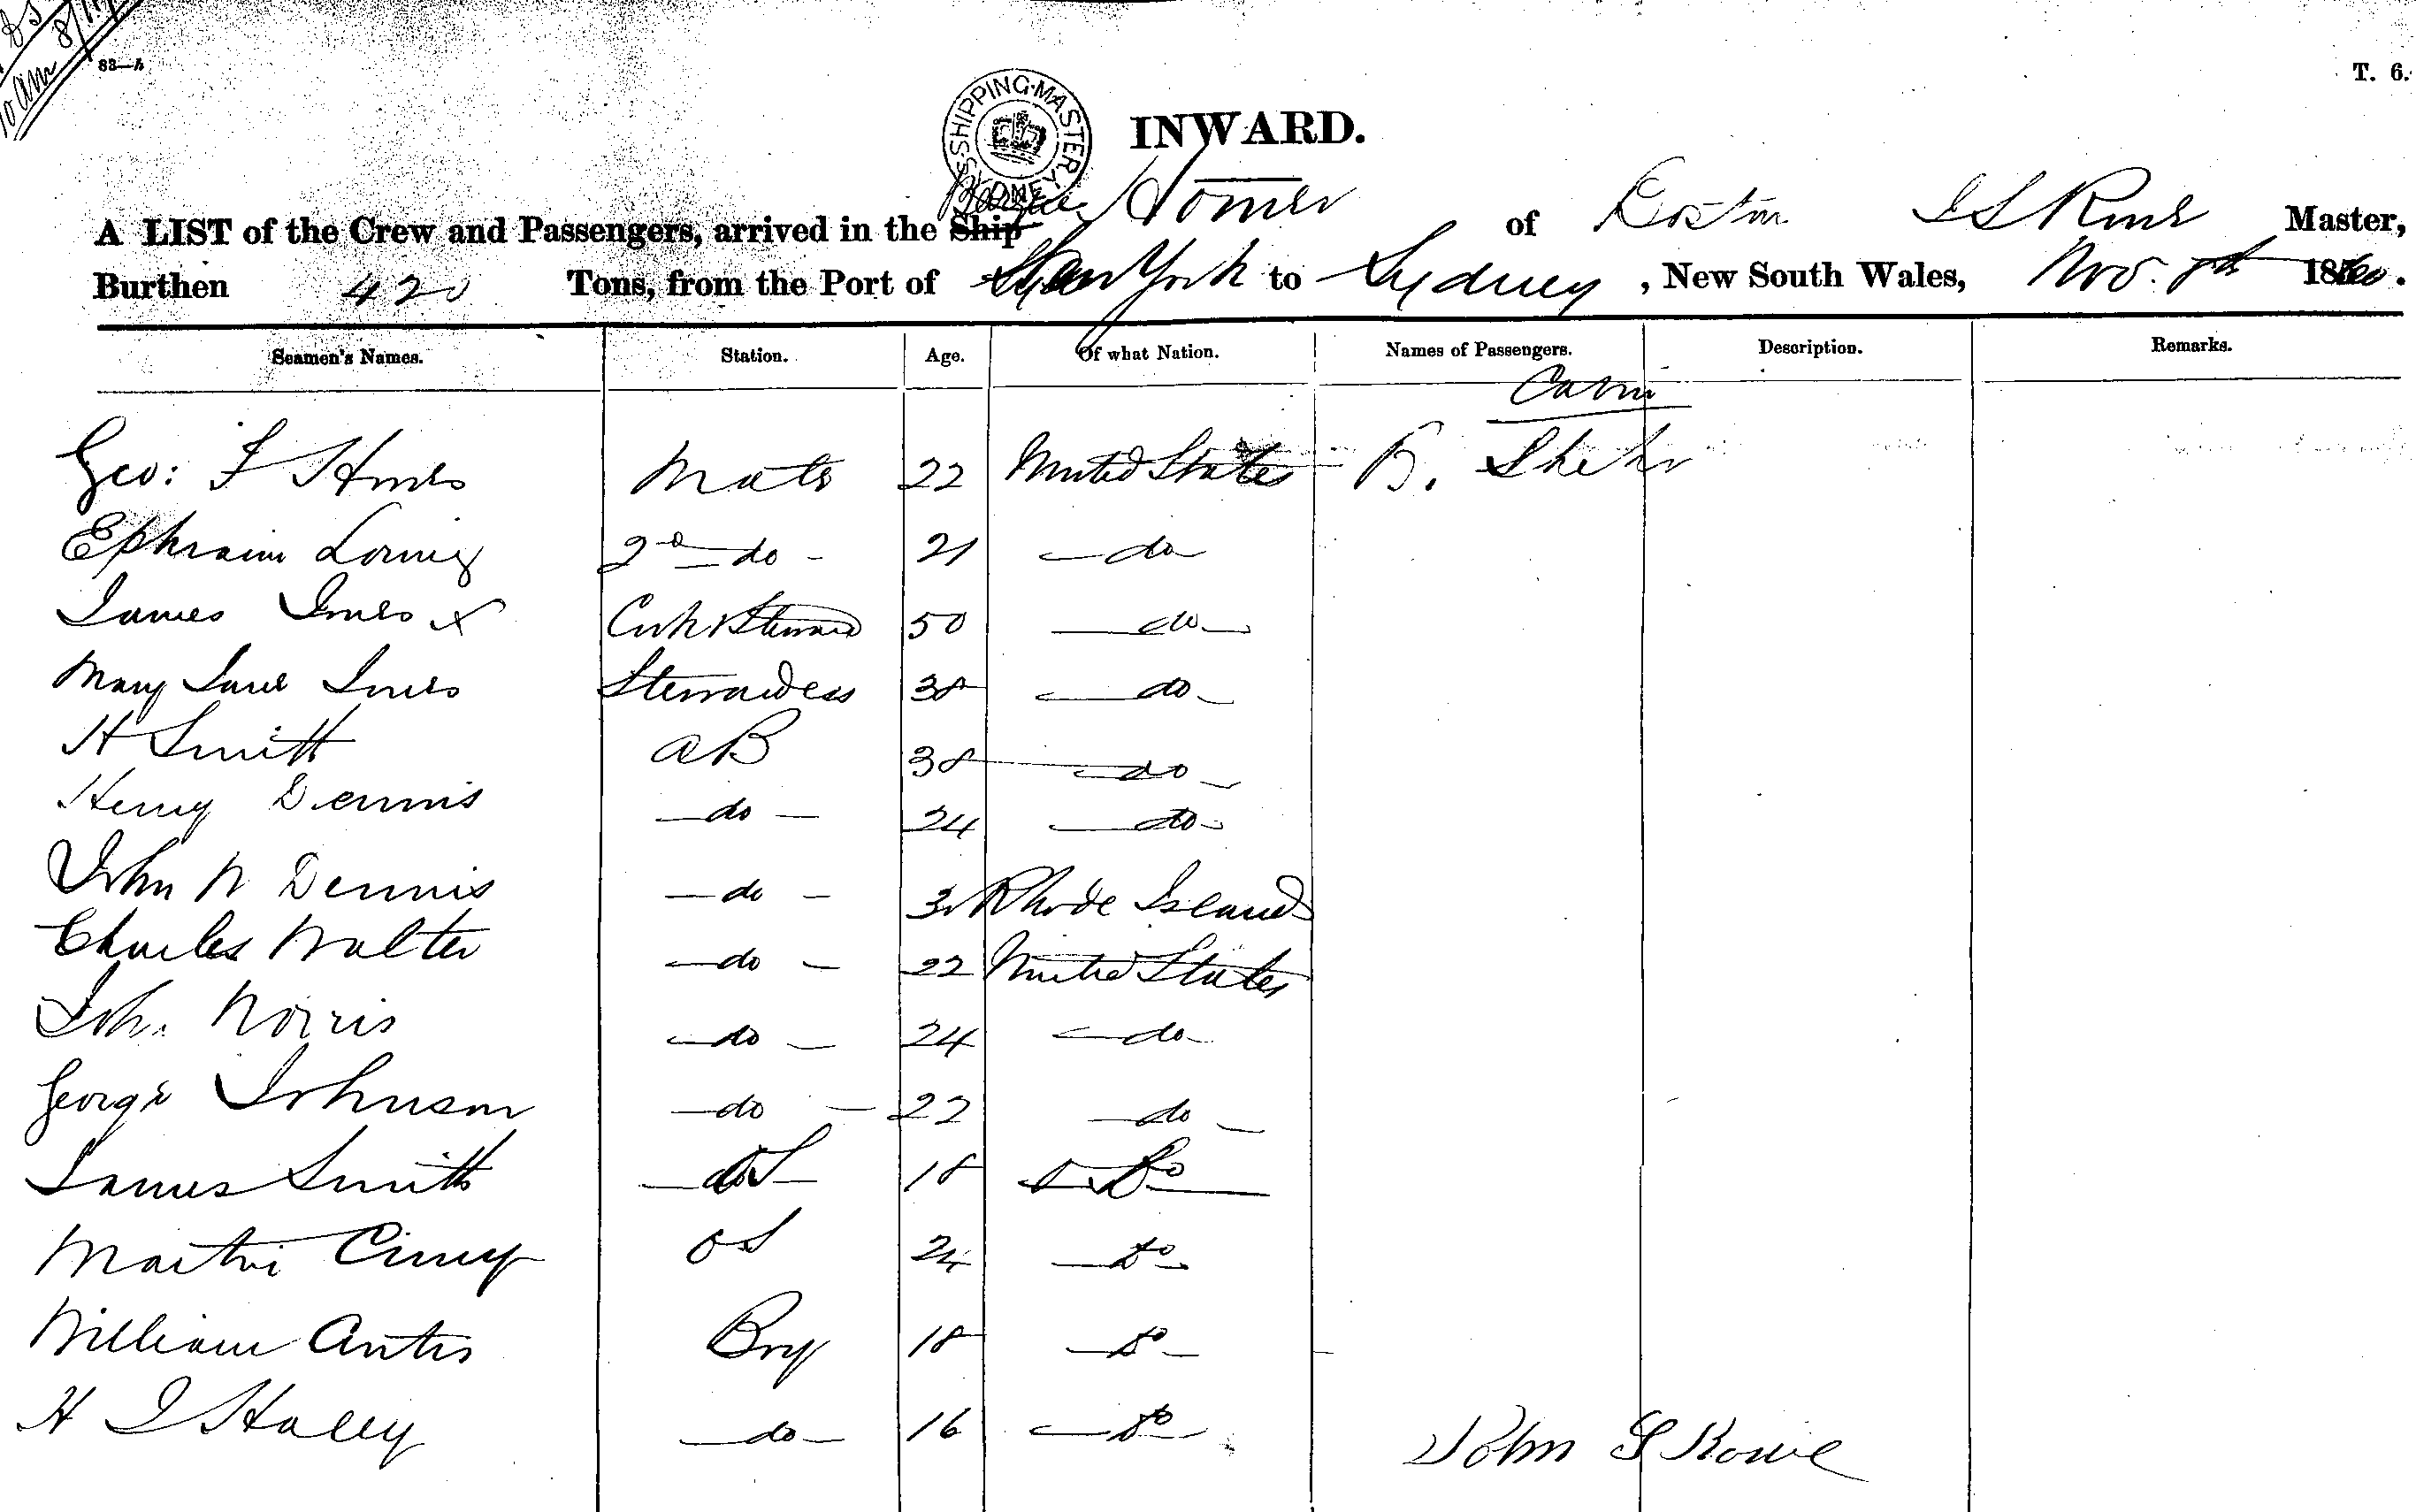 10 am 8/11
83—A
T. 6.
SHIPPING MASTER'S SYDNEY
INWARD.
A LIST of the Crew and Passengers, arrived in the Ship Barque Homer of Boston J S Rowe Master,
Burthen 420 Tons, from the Port of New York to Sydney, New South Wales, Nov. 8th 1860.
Seamen's Names. Station. Age. Of what Nation. Names of Passengers. Description. Remarks.
Cabin
Geo: F Homes Mate 22 United States B.
Ephraim Loring 2d do - 21 — do
James Jones x Cook & Steward 50 — do —
Mary Jane Jones Stewardess 38 — do —
H Smith AB 38 — do —
Henry Dennis — do — 24 — do —
John W Dennis — do — Rhode Island
Charles Walter — do — 22 United States
John Norris — do — 24 — do —
George Johnson — do — 22 — do —
James Smith OS 18 Do
Martin OS 24 — Do —
William Antis Boy 18 — Do —
H J Haley — do — 16 — Do —
John S Rowe